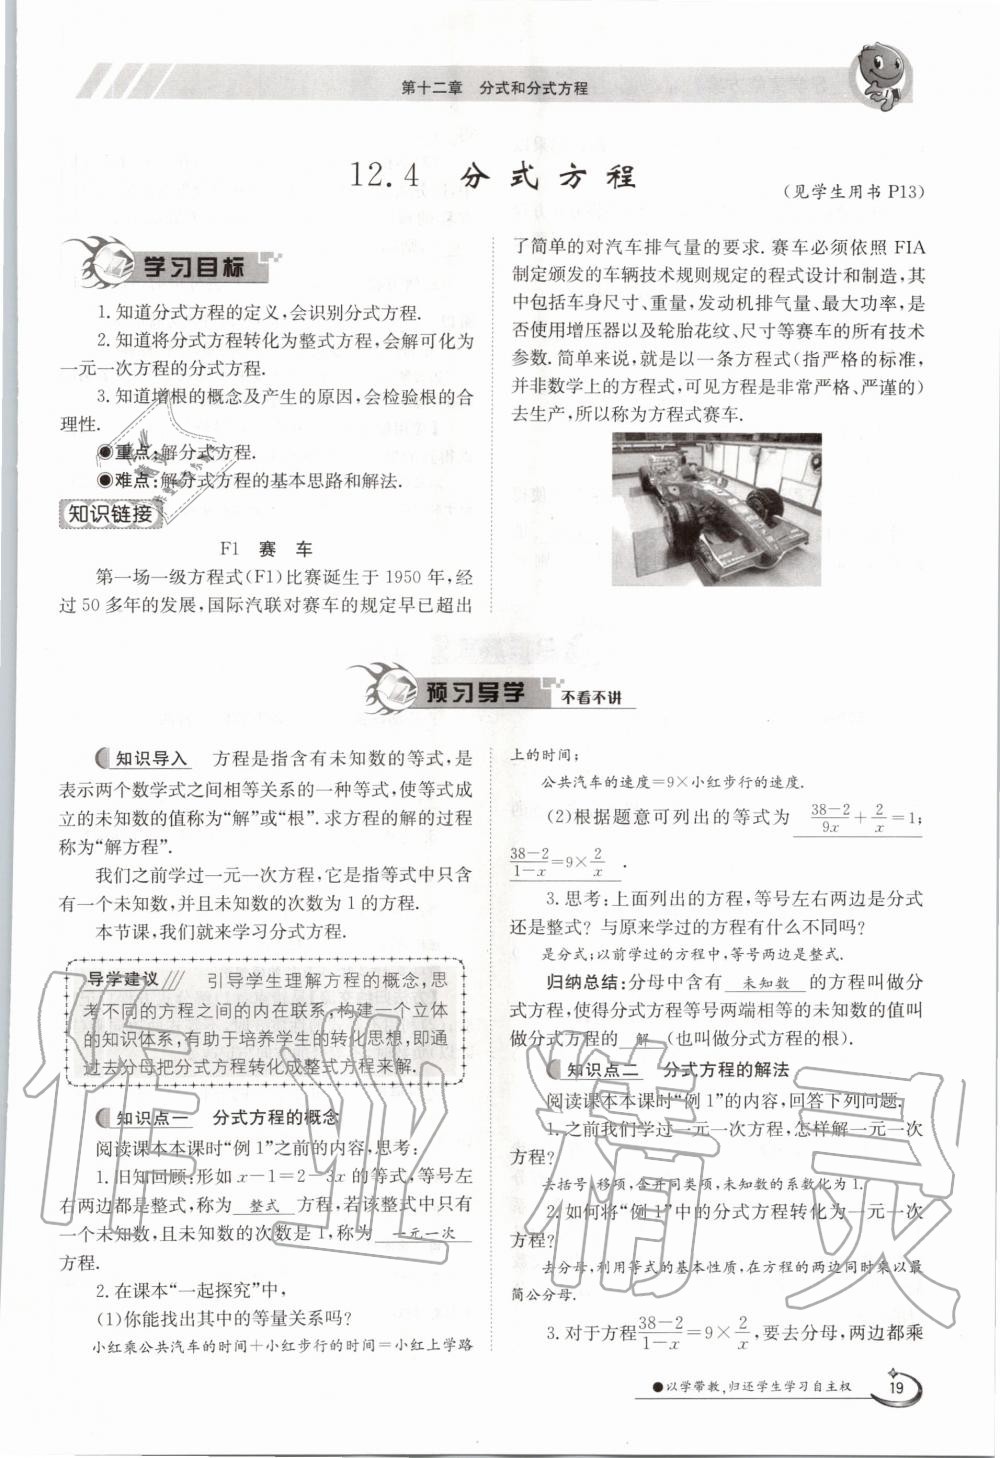 第十二章 分式和分式方程
12.4 分式方程
(见学生用书 P13)
学习目标
1. 知道分式方程的定义,会识别分式方程.
2. 知道将分式方程转化为整式方程,会解可化为
一元一次方程的分式方程.
3. 知道增根的概念及产生的原因,会检验根的合
理性.
●重点:解分式方程.
●难点:解分式方程的基本思路和解法.
知识链接
F1 赛 车
第一场一级方程式(F1)比赛诞生于 1950 年,经
过 50 多年的发展,国际汽联对赛车的规定早已超出
了简单的对汽车排气量的要求. 赛车必须依照 FIA
制定颁发的车辆技术规则规定的程式设计和制造,其
中包括车身尺寸、重量,发动机排气量、最大功率,是
否使用增压器以及轮胎花纹、尺寸等赛车的所有技术
参数. 简单来说,就是以一条方程式(指严格的标准,
并非数学上的方程式,可见方程是非常严格、严谨的)
去生产,所以称为方程式赛车.
预习导学 不看不讲
知识导入 方程是指含有未知数的等式,是
表示两个数学式之间相等关系的一种等式,使等式成
立的未知数的值称为“解”或“根”. 求方程的解的过程
称为“解方程”.
我们之前学过一元一次方程,它是指等式中只含
有一个未知数,并且未知数的次数为 1 的方程.
本节课,我们就来学习分式方程.
导学建议 引导学生理解方程的概念,思
考不同的方程之间的内在联系,构建一个立体
的知识体系,有助于培养学生的转化思想,即通
过去分母把分式方程转化成整式方程来解.
知识点一 分式方程的概念
阅读课本本课时“例 1”之前的内容,思考:
1. 旧知回顾:形如 x－1＝2－3x 的等式,等号左
右两边都是整式,称为 整式 方程,若该整式中只有
一个未知数,且未知数的次数是 1,称为 一元一次
方程.
2. 在课本“一起探究”中,
(1)你能找出其中的等量关系吗?
小红乘公共汽车的时间＋小红步行的时间＝小红上学路
上的时间;
公共汽车的速度＝9×小红步行的速度.
(2)根据题意可列出的等式为 (38－2)/(9x)＋2/x＝1;
(38－2)/(1－x)＝9×2/x .
3. 思考:上面列出的方程,等号左右两边是分式
还是整式? 与原来学过的方程有什么不同吗?
是分式;以前学过的方程中,等号两边是整式.
归纳总结:分母中含有 未知数 的方程叫做分
式方程,使得分式方程等号两端相等的未知数的值叫
做分式方程的 解 (也叫做分式方程的根).
知识点二 分式方程的解法
阅读课本本课时“例 1”的内容,回答下列问题.
1. 之前我们学过一元一次方程,怎样解一元一次
方程?
去括号,移项,合并同类项,未知数的系数化为 1.
2. 如何将“例 1”中的分式方程转化为一元一次
方程?
去分母,利用等式的基本性质,在方程的两边同时乘以最
简公分母.
3. 对于方程(38－2)/(1－x)＝9×2/x,要去分母,两边都乘
●以学带教,归还学生学习自主权
19
作业精灵